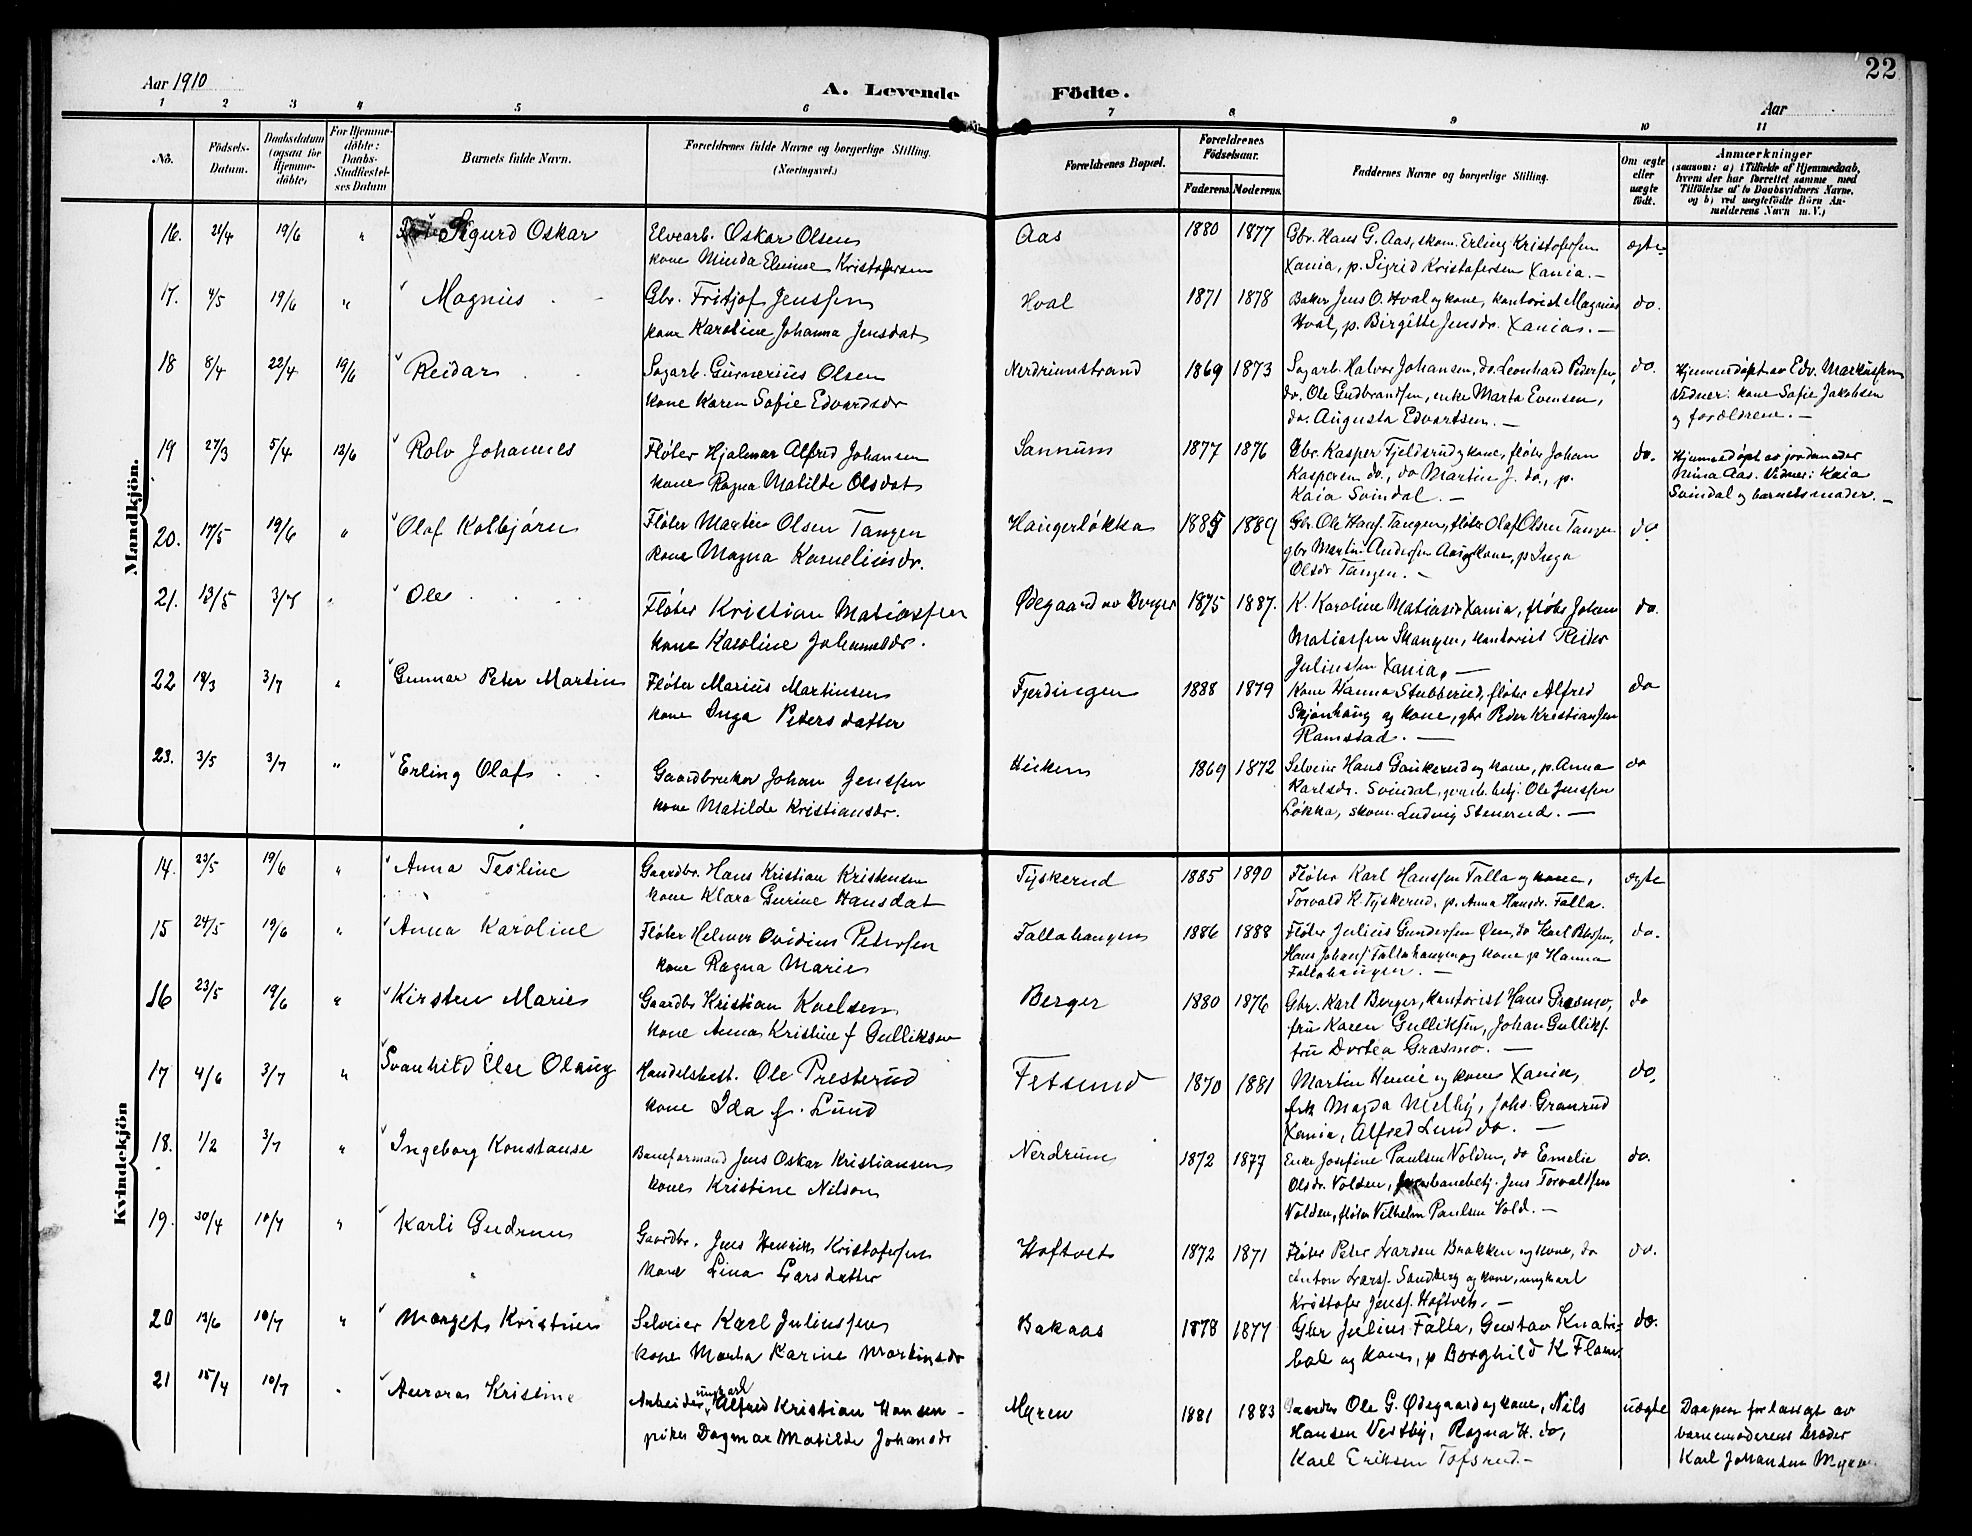 22
Aar 1910
A. Levende Födte.
Aar
1 2 3 4 5 6 7 8 9 10 11
No.
Födsels-
Datum.
Daabsdatum
(ogsaa for
Hjemme-
döbte)
For Hjemme-
döbte:
Daabs-
Stadfæstel-
ses Datum
Barnets fulde Navn.
Forældrenes fulde Navne og borgerlige Stilling.
(Næringsvei.)
Forældrenes Bopæl.
Forældrenes
Födselsaar.
Faderens. Moderens.
Faddernes Navne og borgerlige Stilling.
Om ægte
eller
uægte
födt.
Anmærkninger
(saasom: a) i Tilfælde af Hjemmedaab,
hvem der har forrettet samme med
Tilföielse af to Daabsvidners Navne,
og b) ved uægtefödte Börn An-
melderens Navn m. V.)
Mandkjön.
16. 21/4 19/6 " Sigurd Oskar
Elvearb. Oskar Olsen
kone Minda Elmine Kristofersen
Aas 1880 1877
Gbr. Hans G. Aas, skom. Erling Kristofersen
Xania, p. Sigrid Kristofersen Xania. —
ægte
17. 4/5 19/6 " Magnus
Gbr. Fritjof Jenssen
kone Karoline Johanna Jensdat
Hval 1871 1878
Baker Jens O. Hval og kone, kontorist Magnus
Hval, p. Birgitte Jensdr. Xania. —
do.
18 8/4 22/4 19/6 Reidar
Sagarb. Gunerius Olsen
kone Karen Sofie Edvardsdr
Nerdrumstrand 1869 1873
Sagarb. Halvor Johansen, do. Leonhard Pedersen,
do. Ole Gudbrandsen, enke Marta Evensen,
do. Augusta Edvartsen. —
do.
Hjemmedøpt av Edv. Markussen
Vidner: kone Sofie Jakobsen
og forældrene. —
19 27/3 5/4 12/6 Rolv Johannes
Fløter Hjalmar Alfred Johansen
kone Ragna Matilde Olsdat
Sannum 1877 1876
Gbr. Kasper Fjeldsrud og kone, fløter Johan
Kaspersen do., do Martin J. do., p.
Kaia Svindal. —
do.
Hjemmedøpt av jordmoder
Nina Aas. Vidner: Kaia
Svindal og barnets moder. —
20. 17/5 19/6 " Olaf Kolbjørn
Fløter Martin Olsen Tangen
kone Magna Korneliusdr.
Haugerløkka 1885 1889
Gbr. Ole Hansf. Tangen, fløter Olaf Olsen Tangen
gbr Martin Andersen Aas og kone, p Inga
Olsdr Tangen. —
do
21. 13/5 3/7 " Ole
Fløter Kristian Matiassen
kone Karoline Johannesdr.
Ødegaard av Berger 1875 1887.
K. Karoline Matiasdr Xania, fløter Johan
Matiassen Skangen, kontorist Reidar
Juliussen Xania. —
do.
22 18/3 3/7 " Gunnar Peter Martin
Fløter Marius Martinsen
kone Inga Petersdatter
Fjerdingen 1888 1879
Kone Hanna Stubberud, fløter Alfred
Skjønhaug og kone, gbr Peder Kristiansen
Ramstad. —
do
23. 3/5 3/7 " Erling Olaf
Gaardbruker Johan Jenssen
kone Matilde Kristiansdr.
1869 1872
Selveier Hans Gaukerud og kone, p. Anna
Karlsdr. Svindal, Ole Jenssen
Løkka, skom. Ludvig Stenerud. —
do
Kvindekjön
14. 23/5 19/6 " Anna Tesline
Gaardbr. Hans Kristian Kristensen
kone Klara Gurine Hansdat
Tyskerud 1885 1890
Fløter Karl Hanssen Falla og kone,
Torvald K. Tyskerud, p. Anna Hansdr. Falla.
ægte
15 24/5 19/6 " Anna Karoline
Fløter Helmer Ovidius Petersen
kone Ragna Marie
Fallahaugen 1886 1888
Fløter Julius Gundersen Øen, do Karl Petersen,
Hans Johansf Fallahaugen og kone p Hanna
Fallahaugen. —
do.
16 23/5 19/6 " Kirsten Marie
Gaardbr Kristian Karlsen
kone Anna Kristine f Gulliksen
Berger 1880 1876
Gbr. Karl Berger, kontorist Hans Grasmo,
fru Karen Gulliksen, Johan Gulliks.
fru Dortea Grasmo. —
do
17 4/6 3/7 " Svanhild Else Olaug
Handelsbest. Ole Presterud
kone Ida f. Lund
Fetsund 1870 1881
Martin Henie og kone Xania,
frk Magda Melby, Johs. Granrud
Xania, Alfred Lund do. —
do.
18. 1/2 3/7 " Ingeborg Konstanse
Baneformand Jens Oskar Kristiansen
kone Kristine Nilson
Nerdrum 1872 1877
Enke Josefine Paulsen Volden, do Emelie
Olsdr. Volden, banebetj. Jens Torvaldsen
Volden, fløter Vilhelm Paulsen Vold. —
do.
19. 30/4 10/7 " Karli Gudrun
Gaardbr. Jens Henrik Kristofersen
kone Lina Larsdatter
Hoftvet 1872 1871
Fløter Peter Larsen Brakken og kone, do
Anton Larsf. Sandberg og kone, ungkarl
Kristofer Jensf. Hoftvet. —
do.
20 13/6 10/7 " Margit Kristine
Selveier Karl Juliussen
kone Marta Karine Martinsdr
Bakaas 1878 1877
Gbr Julius Falla, Gustav
og kone, p Borghild K Flam.
do.
21 15/4 10/7 " Aurora Kristine
Arbeider, ungkarl Alfred Kristian Hansen –
pike Dagmar Matilde Johansdr
Myren 1881 1883
Ole G. Ødegaard og kone, Nils
Hansen Vestby, Ragna H. do,
Karl Eriksen Tofsrud. –
uægte
Daapen forlangt av
barnemoderens broder
Karl Johansen Myren